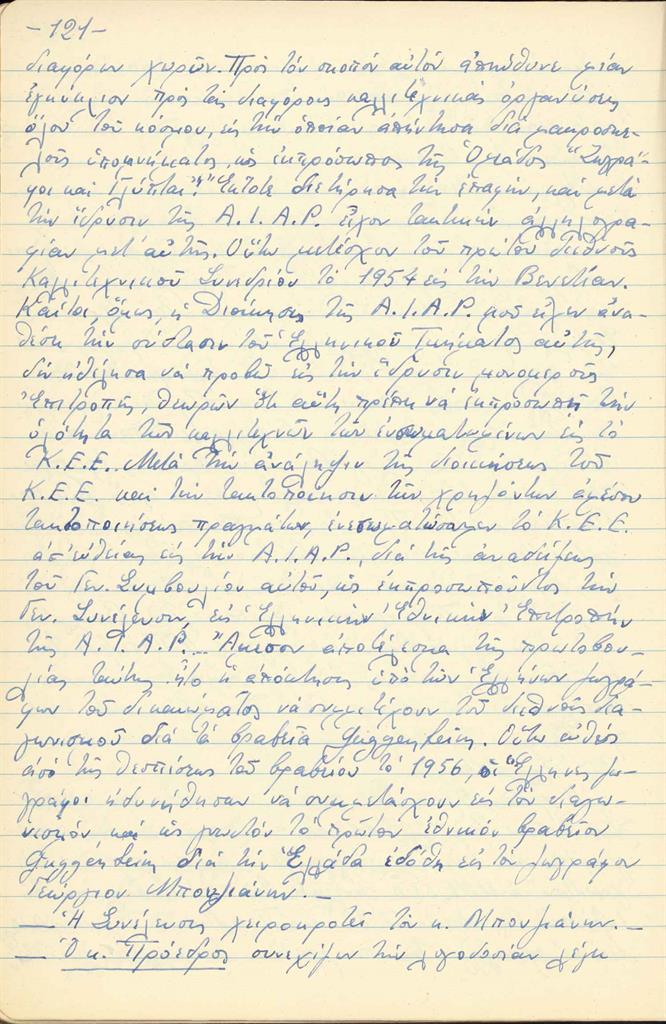 -121-
διαφόρων χωρῶν. Πρὸς τὸν σκοπὸν αὐτὸν ἀπηύθυνε μίαν
ἐγκύκλιον πρὸς τὰς διαφόρους καλλιτεχνικὰς ὀργανώσεις
ὅλου τοῦ κόσμου, εἰς τὴν ὁποίαν ἀπήντησα διὰ μακροσκε-
λοῦς ὑπομνήματος, ὡς ἐκπρόσωπος τῆς Ὁμάδος "Ζωγρά-
φοι καὶ Γλύπται". Ἔκτοτε διετήρησα τὴν ἐπαφήν, καὶ μετὰ
τὴν ἵδρυσιν τῆς Α.Ι.Α.Ρ. εἶχον τακτικὴν ἀλληλογρα-
φίαν μετ' αὐτῆς. Οὕτω μετέσχον τοῦ πρώτου διεθνοῦς
Καλλιτεχνικοῦ Συνεδρίου τὸ 1954 εἰς τὴν Βενετίαν.
Καίτοι, ὅμως, ἡ Διοίκησις τῆς Α.Ι.Α.Ρ. μοῦ εἶχεν ἀνα-
θέσει τὴν σύστασιν τοῦ Ἑλληνικοῦ Τμήματος αὐτῆς,
δὲν ἠθέλησα νὰ προβῶ εἰς τὴν ἵδρυσιν μονομεροῦς
Ἐπιτροπῆς, θεωρῶν ὅτι αὕτη πρέπει νὰ ἐκπροσωπῇ τὴν
ὁλότητα τῶν καλλιτεχνῶν τῶν ἐνσωματωμένων εἰς τὸ
Κ.Ε.Ε. Μετὰ τὴν ἀνάληψιν τῆς διοικήσεως τοῦ
Κ.Ε.Ε. καὶ τὴν τακτοποίησιν τῶν χρηζόντων ἀμέσου
τακτοποιήσεως πραγμάτων, ἐνεσωματώσαμεν τὸ Κ.Ε.Ε.
ἀπ' εὐθείας εἰς τὴν Α.Ι.Α.Ρ., διὰ τῆς ἀναδείξεως
τοῦ Γεν. Συμβουλίου αὐτοῦ, ὡς ἐκπροσωποῦντος τὴν
Γεν. Συνέλευσιν, εἰς Ἑλληνικὴν Ἐθνικὴν Ἐπιτροπὴν
τῆς Α.Ι.Α.Ρ. Ἄμεσον ἀποτέλεσμα τῆς πρωτοβου-
λίας ταύτης ἦτο ἡ ἀπόκτησις ὑπὸ τῶν Ἑλλήνων ζωγρά-
φων τοῦ δικαιώματος νὰ συμμετέχουν τοῦ διεθνοῦς δια-
γωνισμοῦ διὰ τὰ βραβεῖα Guggenheim. Οὕτω εὐθὺς
ἀπὸ τῆς θεσπίσεως τοῦ βραβείου τὸ 1956, οἱ Ἕλληνες ζω-
γράφοι ἠδυνήθησαν νὰ συμμετάσχουν εἰς τὸν διαγω-
νισμόν καὶ ὡς γνωστόν τὸ πρῶτον ἐθνικόν βραβεῖον
Guggenheim διὰ τὴν Ἑλλάδα ἐδόθη εἰς τὸν ζωγράφον
Γεώργιον Μπουζιάνην. —
— Ἡ Συνέλευσις χειροκροτεῖ τὸν κ. Μπουζιάνην. —
— Ὁ κ. Πρόεδρος συνεχίζων τὴν λογοδοσίαν λέγει